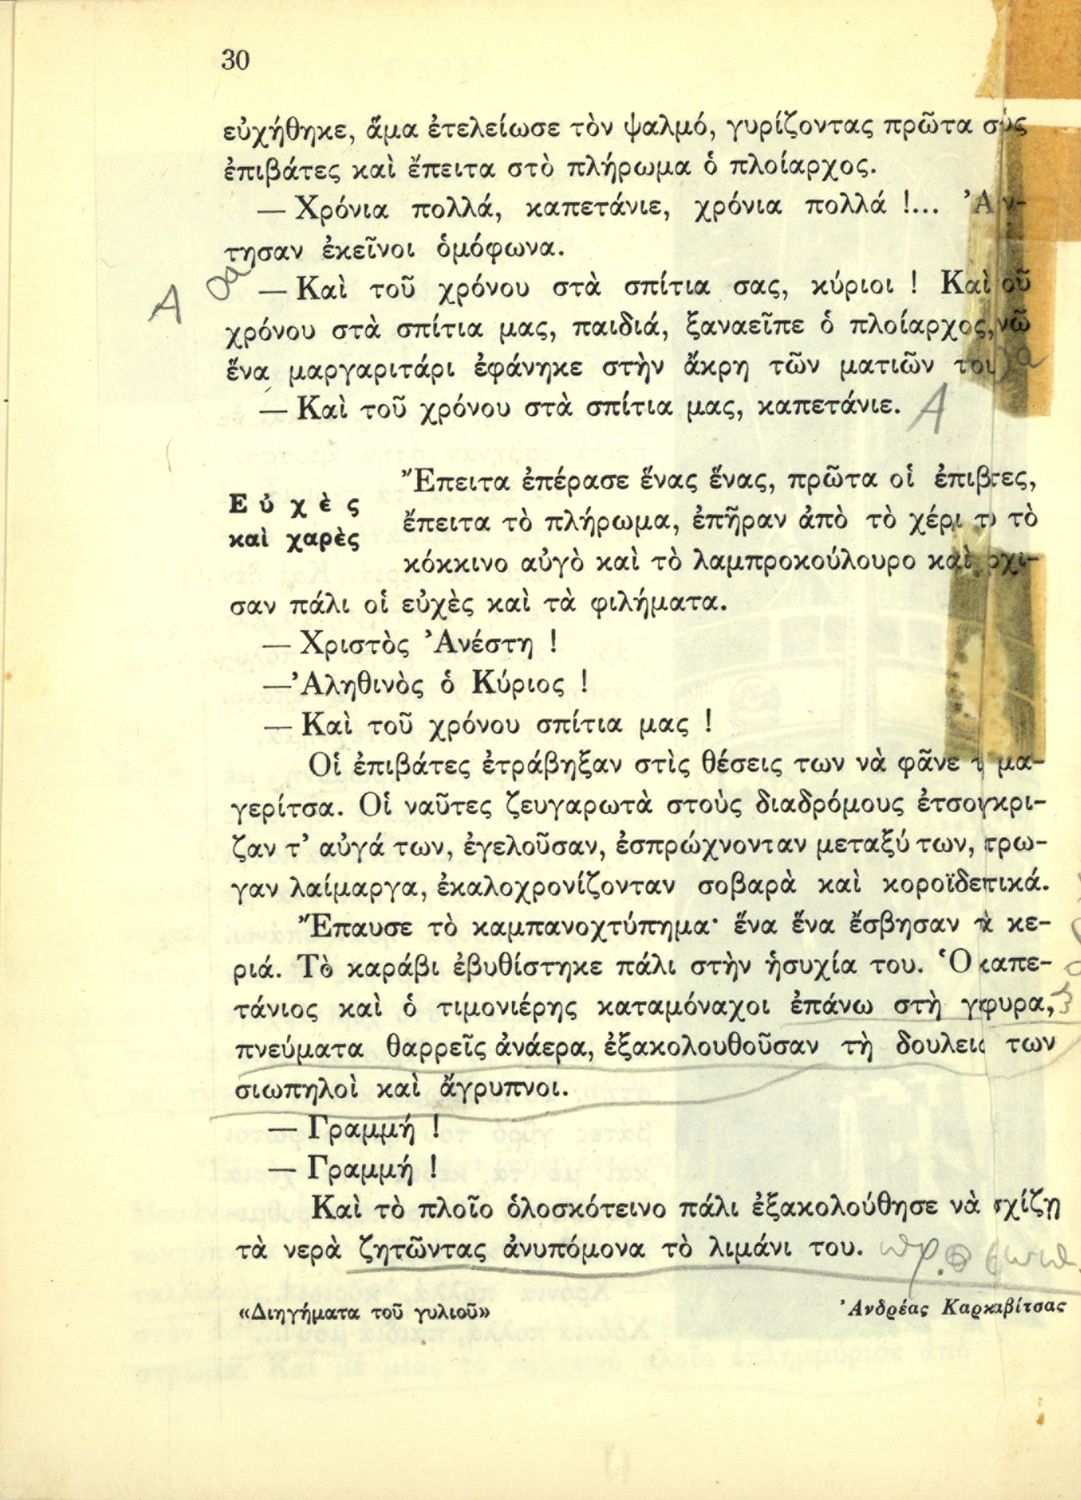 30
εὐχήθηκε, ἅμα ἐτελείωσε τὸν ψαλμό, γυρίζοντας πρῶτα
ἐπιβάτες καὶ ἔπειτα στὸ πλήρωμα ὁ πλοίαρχος.
— Χρόνια πολλά, καπετάνιε, χρόνια πολλά !...
τησαν ἐκεῖνοι ὁμόφωνα.
— Καὶ τοῦ χρόνου στὰ σπίτια σας, κύριοι ! Καὶ
χρόνου στὰ σπίτια μας, παιδιά, ξαναεῖπε ὁ πλοίαρχος,
ἕνα μαργαριτάρι ἐφάνηκε στὴν ἄκρη τῶν ματιῶν του
— Καὶ τοῦ χρόνου στὰ σπίτια μας, καπετάνιε.
Α
Α
Εὐχὲς
καὶ χαρὲς
Ἔπειτα ἐπέρασε ἕνας ἕνας, πρῶτα οἱ
ἔπειτα τὸ πλήρωμα, ἐπῆραν ἀπὸ τὸ χέρι τὸ
κόκκινο αὐγὸ καὶ τὸ λαμπροκούλουρο καὶ
σαν πάλι οἱ εὐχὲς καὶ τὰ φιλήματα.
— Χριστὸς Ἀνέστη !
—Ἀληθινὸς ὁ Κύριος !
— Καὶ τοῦ χρόνου σπίτια μας !
Οἱ ἐπιβάτες ἐτράβηξαν στὶς θέσεις των νὰ φᾶνε μα-
γερίτσα. Οἱ ναῦτες ζευγαρωτὰ στοὺς διαδρόμους ἐτσουγκρι-
ζαν τ' αὐγά των, ἐγελοῦσαν, ἐσπρώχνονταν μεταξύ των, τρω-
γαν λαίμαργα, ἐκαλοχρονίζονταν σοβαρὰ καὶ
Ἔπαυσε τὸ καμπανοχτύπημα· ἕνα ἕνα ἔσβησαν τὰ κε-
ριά. Τὸ καράβι ἐβυθίστηκε πάλι στὴν ἡσυχία του. Ὁ καπε-
τάνιος καὶ ὁ τιμονιέρης καταμόναχοι ἐπάνω στὴ γέφυρα,
πνεύματα θαρρεῖς ἀνάερα, ἐξακολουθοῦσαν τὴ δουλειὰ των
σιωπηλοὶ καὶ ἄγρυπνοι.
— Γραμμή !
— Γραμμή !
Καὶ τὸ πλοῖο ὁλοσκότεινο πάλι ἐξακολούθησε νὰ σχίζῃ
τὰ νερὰ ζητῶντας ἀνυπόμονα τὸ λιμάνι του.
«Διηγήματα τοῦ γυλιοῦ»
Ἀνδρέας Καρκαβίτσας